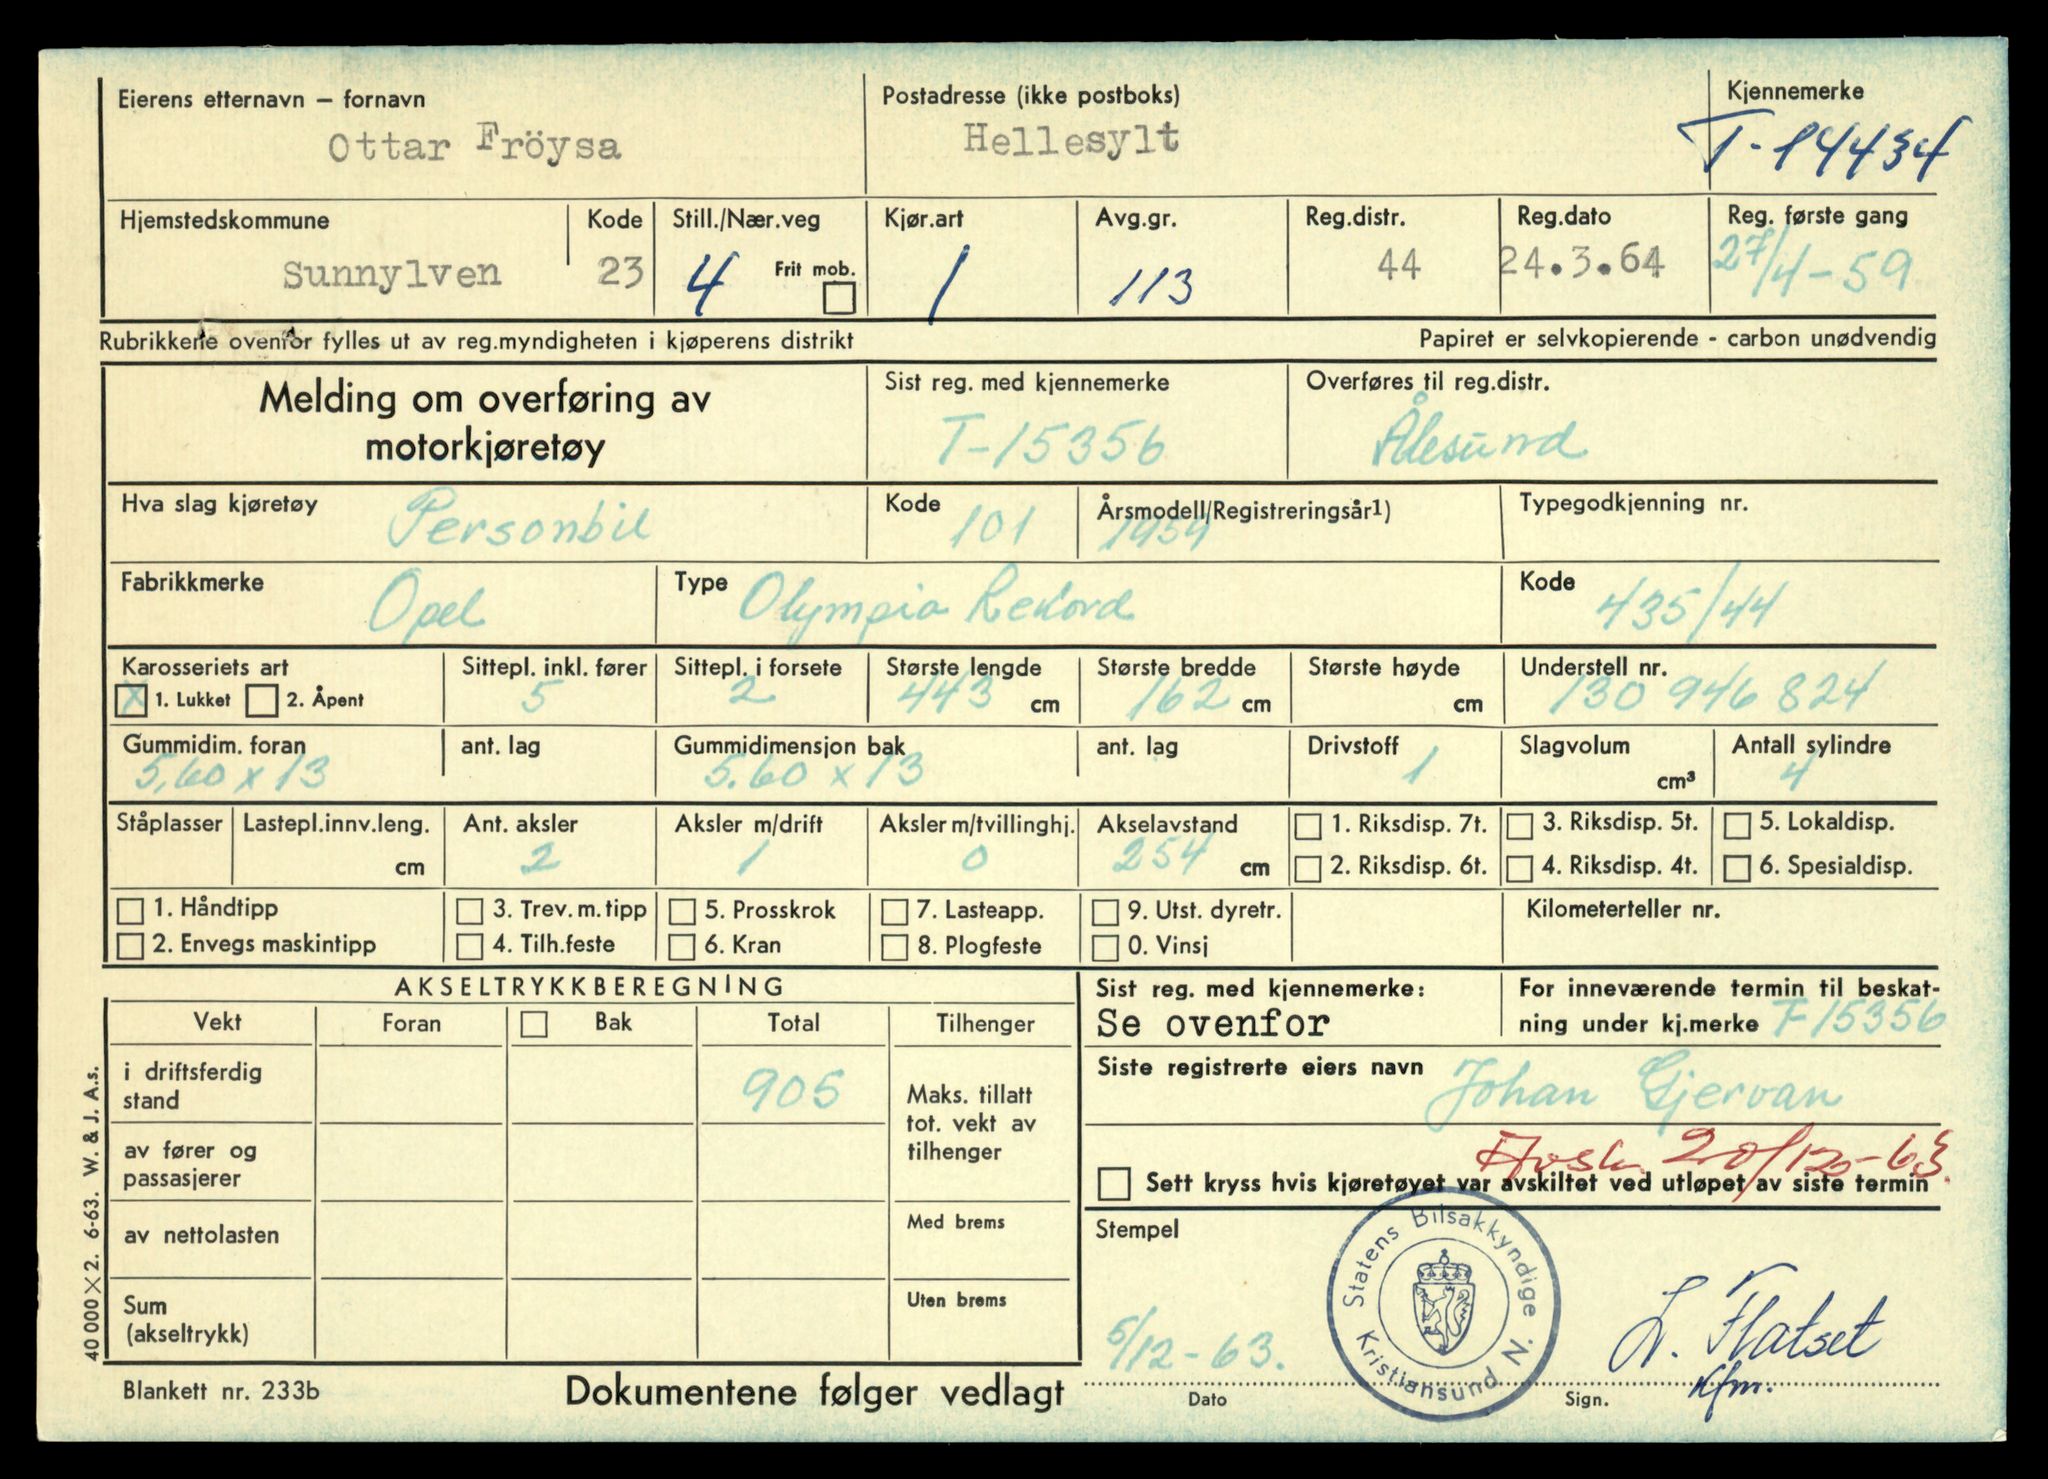 Eierens etternavn – fornavn
Ottar Fröysa
Postadresse (ikke postboks)
Hellesylt
Kjennemerke
T-14434
Hjemstedskommune
Sunnylven
Kode
23
Still./Nær.veg
4
Frit mob.
Kjør.art
1
Avg.gr.
113
Reg.distr.
44
Reg.dato
24.3.64
Reg. første gang
27/4-59
Rubrikkene ovenfor fylles ut av reg.myndigheten i kjøperens distrikt
Papiret er selvkopierende - carbon unødvendig
Melding om overføring av
motorkjøretøy
Sist reg. med kjennemerke
T-15356
Overføres til reg.distr.
Ålesund
Hva slag kjøretøy
Personbil
Kode
101
Årsmodell/Registreringsår1)
1959
Typegodkjenning nr.
Fabrikkmerke
Opel
Type
Olympia Rekord
Kode
435/44
Karosseriets art
X 1. Lukket 2. Åpent
Sittepl. inkl. fører
5
Sittepl. i forsete
2
Største lengde
443 cm
Største bredde
162 cm
Største høyde
cm
Understell nr.
130 946 824
Gummidim. foran
5,60 x 13
ant. lag
Gummidimensjon bak
5.60 x 13
ant. lag
Drivstoff
1
Slagvolum
cm³
Antall sylindre
4
Ståplasser
Lastepl.innv.leng.
cm
Ant. aksler
2
Aksler m/drift
1
Aksler m/tvillinghj.
0
Akselavstand
254 cm
1. Riksdisp. 7t.
2. Riksdisp. 6t.
3. Riksdisp. 5t.
4. Riksdisp. 4t.
5. Lokaldisp.
6. Spesialdisp.
1. Håndtipp
2. Envegs maskintipp
3. Trev. m. tipp
4. Tilh.feste
5. Prosskrok
6. Kran
7. Lasteapp.
8. Plogfeste
9. Utst. dyretr.
0. Vinsj
Kilometerteller nr.
AKSELTRYKKBEREGNING
Vekt Foran Bak Total Tilhenger
i driftsferdig
stand
905
Maks. tillatt
tot. vekt av
tilhenger
av fører og
passasjerer
av nettolasten
Med brems
Sum
(akseltrykk)
Uten brems
Sist reg. med kjennemerke:
Se ovenfor
For inneværende termin til beskat-
ning under kj.merke T-15356
Siste registrerte eiers navn
Johan Gjervan
Avsk. 20/12-63
Sett kryss hvis kjøretøyet var avskiltet ved utløpet av siste termin
Stempel
Statens Bilsakkyndige
Kristiansund N.
5/12-63.
Dato
L. Flatset
Kfm.
Sign.
40 000 × 2. 6-63. W. & J. A.s.
Blankett nr. 233b
Dokumentene følger vedlagt